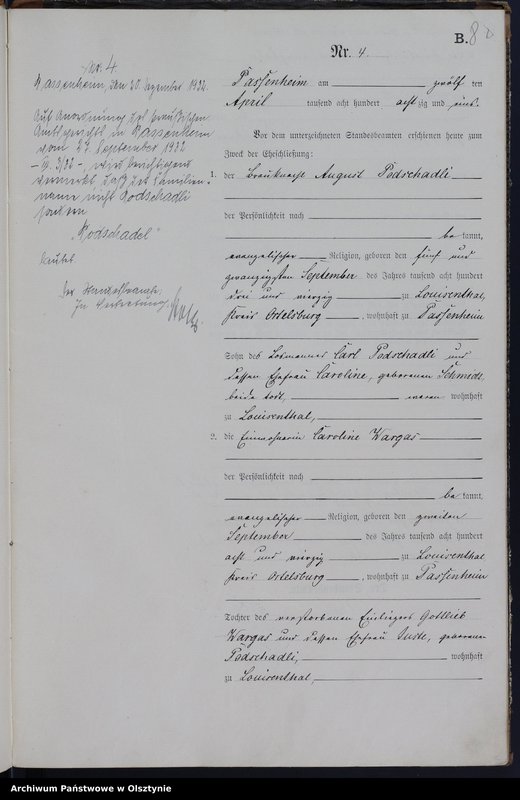 B. 80
Nr. 4.
Passenheim am zwölf ten
April tausend acht hundert acht zig und eins.
Vor dem unterzeichneten Standesbeamten erschienen heute zum
Zweck der Eheschließung:
1. der Brauknecht August Podschadli
der Persönlichkeit nach
be kannt,
evangelischer Religion, geboren den fünf und
zwanzigsten September des Jahres tausend acht hundert
drei und vierzig zu Louisenthal,
Kreis Ortelsburg, wohnhaft zu Passenheim
Sohn des Losmannes Carl Podschadli und
dessen Ehefrau Caroline, geborenen Schmidt,
beide todt, waren wohnhaft
zu Louisenthal,
2. die Einwohnerin Caroline Wargas
der Persönlichkeit nach
be kannt,
evangelischer Religion, geboren den zweiten
September des Jahres tausend acht hundert
acht und vierzig zu Louisenthal
Kreis Ortelsburg, wohnhaft zu Passenheim
Tochter des verstorbenen Einliegers Gottlieb
Wargas und dessen Ehefrau Juste, geborenen
Podschadli, wohnhaft
zu Louisenthal,
Nr. 4
Passenheim, den 30. Dezember 1932.
Auf Anordnung des Preußischen
Amtsgerichts in Passenheim
vom 27. September 1932
wird berichtigend
vermerkt, daß der Familien-
name nicht Podschadli
sondern
"Podschadel"
lautet.
Der Standesbeamte.
In Vertretung
Archiwum Państwowe w Olsztynie